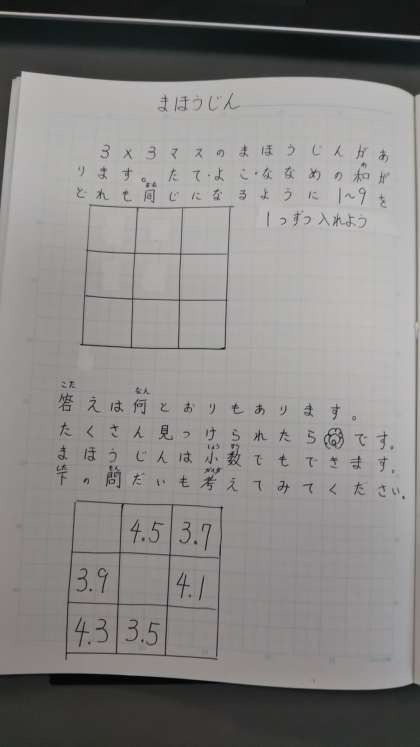 まほうじん
3×3マスのまほうじんがあ
わ
ります。たて・よこ・ななめの和が
おな
どれも同じになるように1~9を
1つずつ入れよう
こた なん
答えは何とおりもあります。
たくさん見つけられたらです。
しょうすう
まほうじんは小数でもできます。
した もん かんが
下の問だいも考えてみてください。
4.5 3.7
3.9 4.1
4.3 3.5